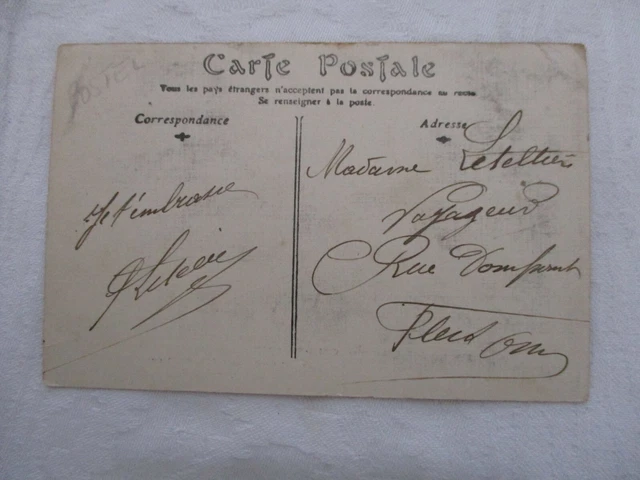 Carte Postale
Tous les pays étrangers n'acceptent pas la correspondance au recto
Se renseigner à la poste.
Correspondance
Adresse
Je t'embrasse
Madame Letellier
Voyageur
Rue Domfront
Flers Orne